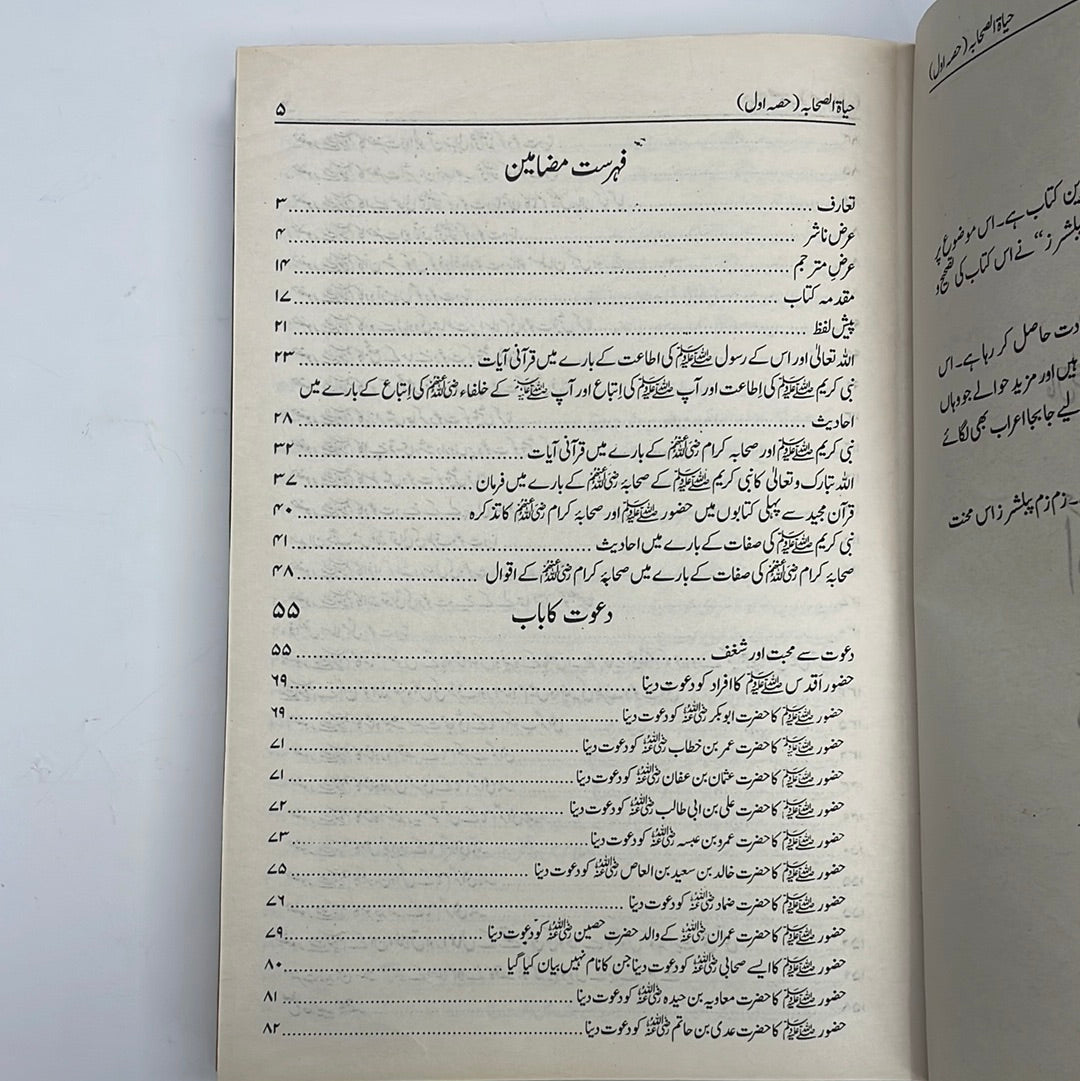 حیاۃ الصحابہ (حصہ اول) ۵
فہرست مضامین
تعارف ۳
عرض ناشر ۴
عرض مترجم ۱۴
مقدمہ کتاب ۱۷
پیش لفظ ۲۱
اللہ تعالیٰ اور اس کے رسول ﷺ کی اطاعت کے بارے میں قرآنی آیات ۲۳
نبی کریم ﷺ کی اطاعت اور آپ ﷺ کی اِتباع اور آپ ﷺ کے خلفاء رضی اللہ عنہم کی اِتباع کے بارے میں
احادیث ۲۸
نبی کریم ﷺ اور صحابہ کرام رضی اللہ عنہم کے بارے میں قرآنی آیات ۳۲
اللہ تبارک و تعالیٰ کا نبی کریم ﷺ کے صحابہ رضی اللہ عنہم کے بارے میں فرمان ۳۷
قرآن مجید سے پہلی کتابوں میں حضور ﷺ اور صحابہ کرام رضی اللہ عنہم کا تذکرہ ۴۰
نبی کریم ﷺ کی صفات کے بارے میں احادیث ۴۱
صحابہ کرام رضی اللہ عنہم کی صفات کے بارے میں صحابہ کرام رضی اللہ عنہم کے اقوال ۴۸
دعوت کا باب ۵۵
دعوت سے محبت اور شغف ۵۵
حضور اقدس ﷺ کا افراد کو دعوت دینا ۶۹
حضور ﷺ کا حضرت ابوبکر رضی اللہ عنہ کو دعوت دینا ۶۹
حضور ﷺ کا حضرت عمر بن خطاب رضی اللہ عنہ کو دعوت دینا ۷۱
حضور ﷺ کا حضرت عثمان بن عفان رضی اللہ عنہ کو دعوت دینا ۷۱
حضور ﷺ کا حضرت علی بن ابی طالب رضی اللہ عنہ کو دعوت دینا ۷۲
حضور ﷺ کا حضرت عمرو بن عبسہ رضی اللہ عنہ کو دعوت دینا ۷۳
حضور ﷺ کا حضرت خالد بن سعید بن العاص رضی اللہ عنہ کو دعوت دینا ۷۵
حضور ﷺ کا حضرت ضماد رضی اللہ عنہ کو دعوت دینا ۷۶
حضور ﷺ کا حضرت عمران رضی اللہ عنہ کے والد حضرت حصین رضی اللہ عنہ کو دعوت دینا ۷۹
حضور ﷺ کا ایسے صحابی رضی اللہ عنہ کو دعوت دینا جن کا نام نہیں بیان کیا گیا ۸۰
حضور ﷺ کا حضرت معاویہ بن حیدہ رضی اللہ عنہ کو دعوت دینا ۸۱
حضور ﷺ کا حضرت عدی بن حاتم رضی اللہ عنہ کو دعوت دینا ۸۲
حیاۃ الصحابہ (حصہ اول)
کتاب ہے۔ اس موضوع پر
پبلشرز" نے اس کتاب کی تصحیح و
حاصل کر رہا ہے۔ اس
ہیں اور مزید حوالے جو وہاں
لیے جا بجا اعراب بھی لگائے
زم زم پبلشرز اس محنت